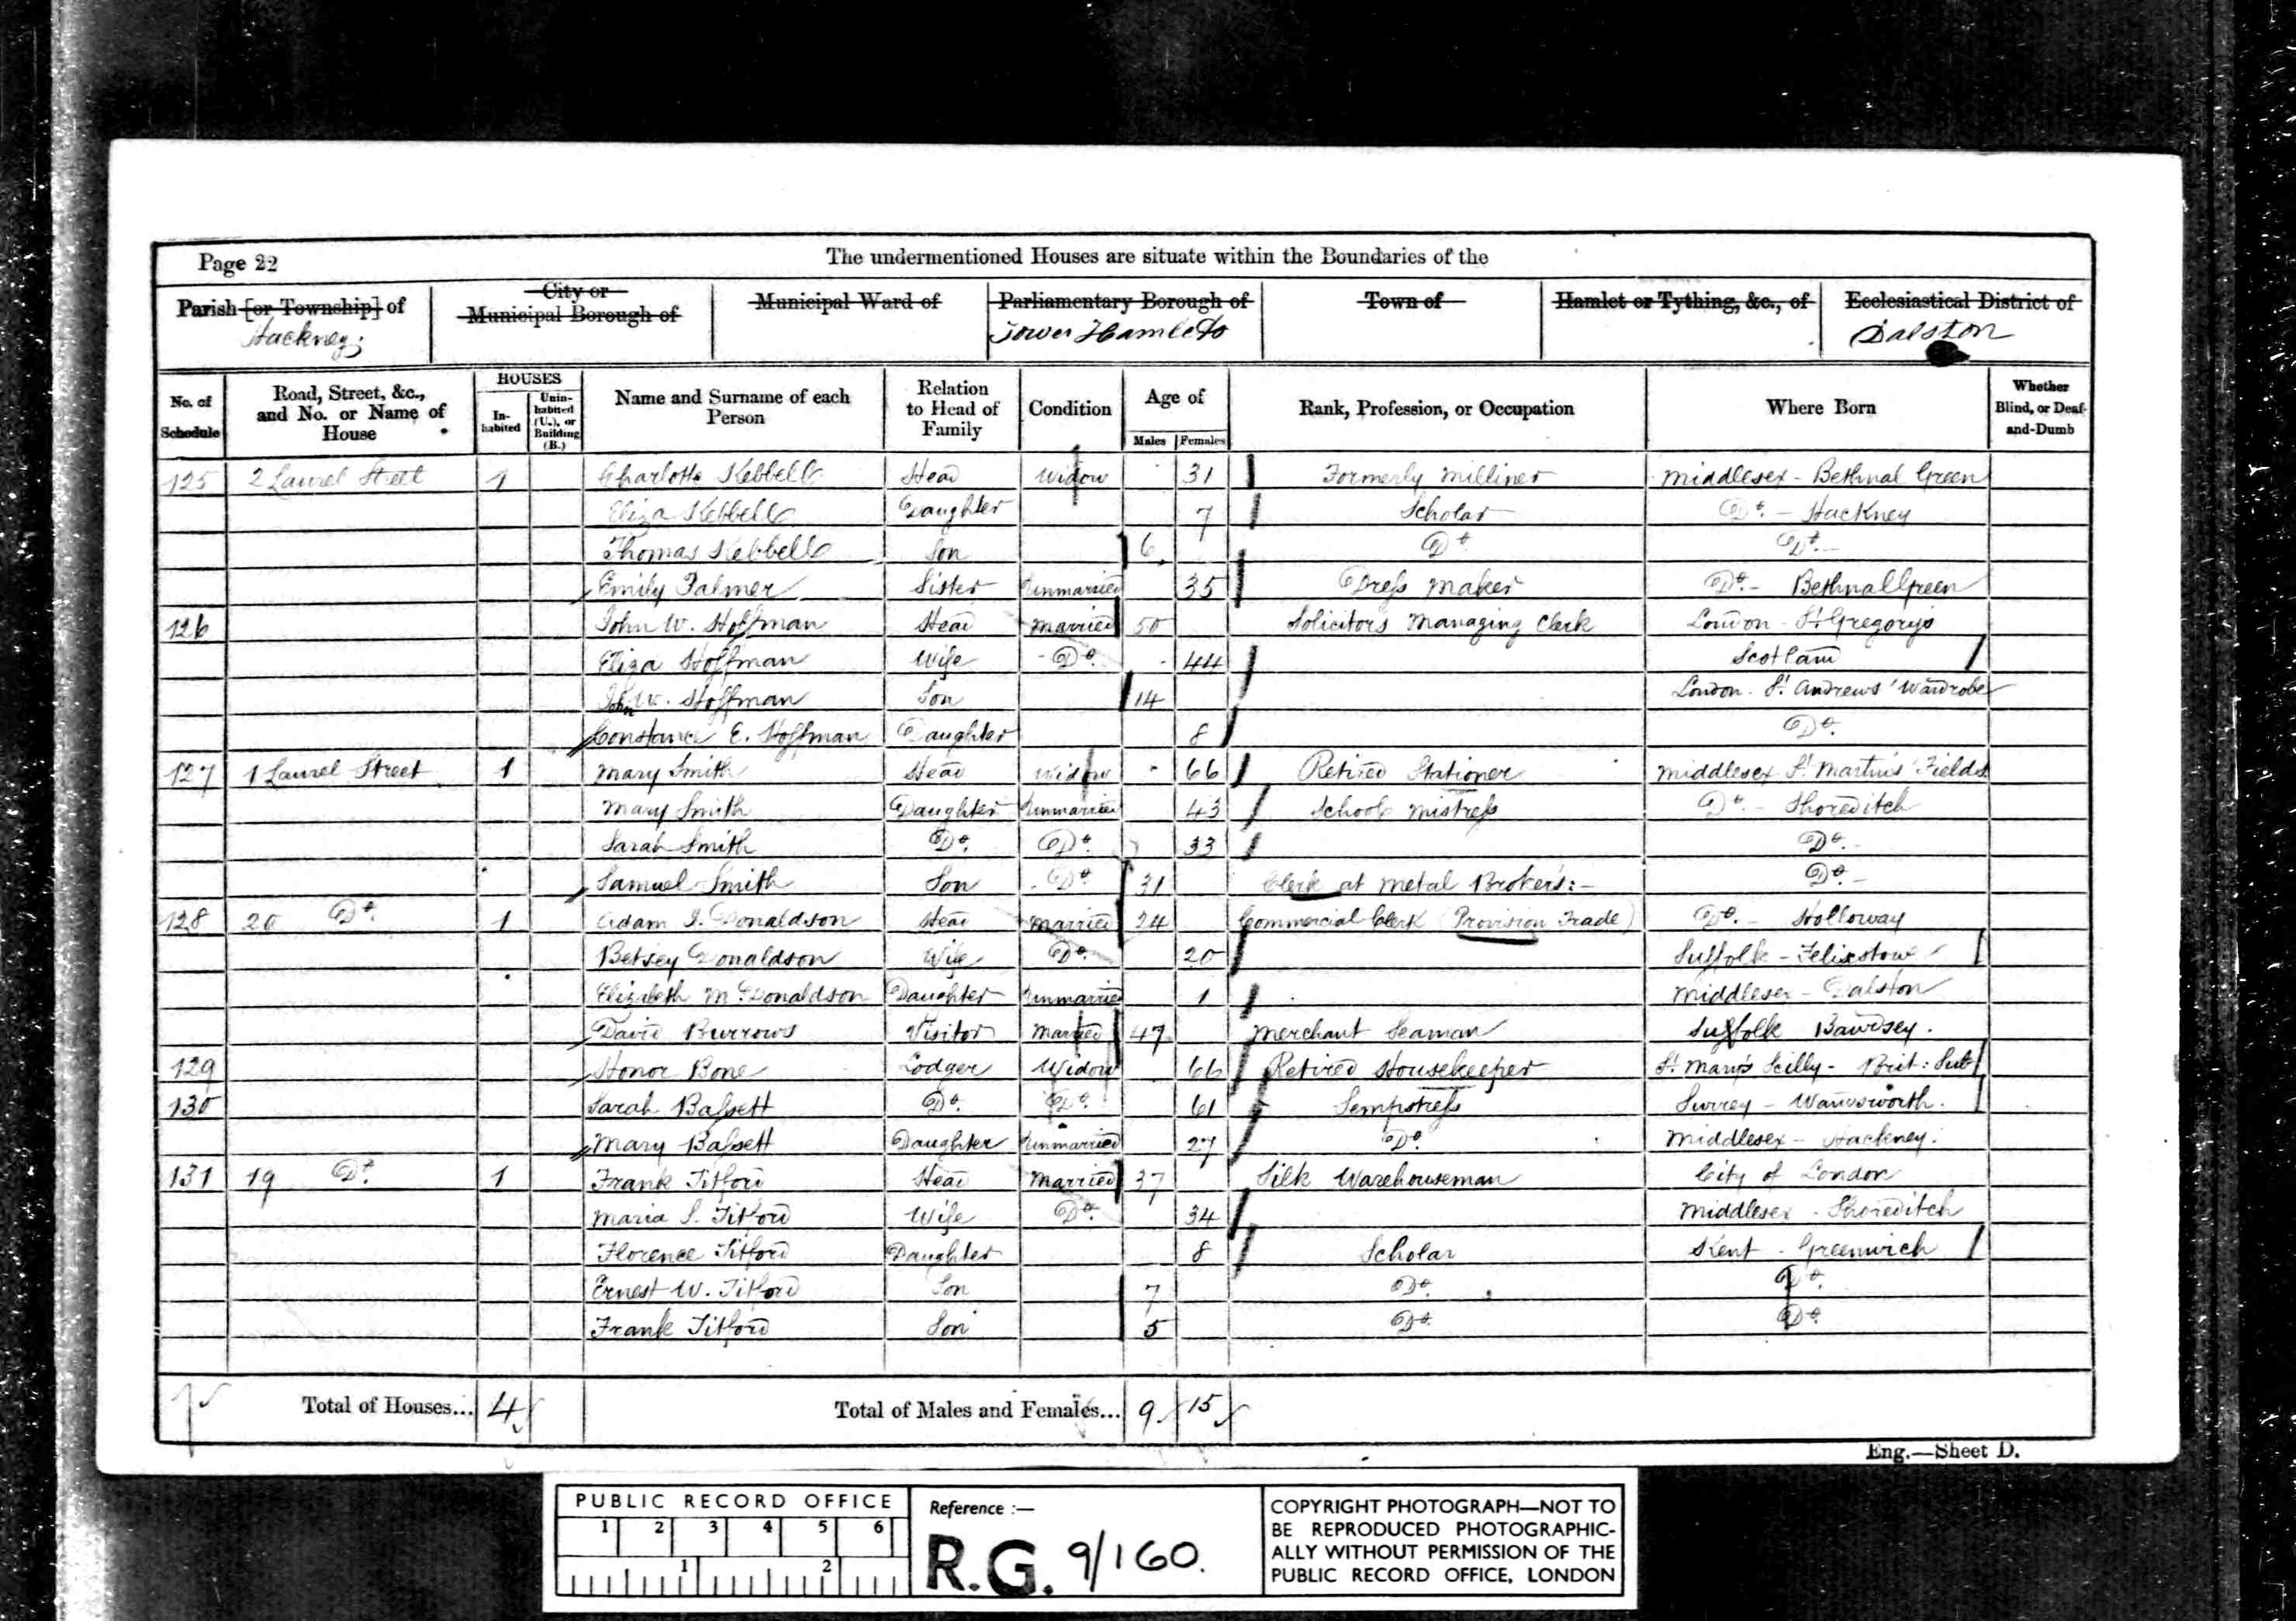 Page 22
The undermentioned Houses are situate within the Boundaries of the
Parish [or Township] of
Hackney
City or
Municipal Borough of
Municipal Ward of
Parliamentary Borough of
Tower Hamlets
Town of
Hamlet or Tything, &c., of
Ecclesiastical District of
Dalston
No. of Schedule
Road, Street, &c., and No. or Name of House
HOUSES
In-habited
Unin-habited (U.), or Building (B.)
Name and Surname of each Person
Relation to Head of Family
Condition
Age of
Males
Females
Rank, Profession, or Occupation
Where Born
Whether Blind, or Deaf-and-Dumb
125 2 Laurel Street 1 Charlotte Kebbell Head Widow 31 Formerly Milliner Middlesex - Bethnal Green
Eliza Kebbell Daughter 7 Scholar Do. - Hackney
Thomas Kebbell Son 6 Do. Do. -
Emily Palmer Sister Unmarried 35 Dress Maker Do. - Bethnal Green
126 John W. Hoffman Head Married 50 Solicitors Managing Clerk London - St. Gregorys
Eliza Hoffman Wife Do. 44 Scotland
John W. Hoffman Son 14 London. St. Andrews' Wardrobe
Constance E. Hoffman Daughter 8 Do.
127 1 Laurel Street 1 Mary Smith Head Widow 66 Retired Stationer Middlesex St. Martins Fields
Mary Smith Daughter Unmarried 43 School Mistress Do. - Shoreditch
Sarah Smith Do. Do. 33 Do. -
Samuel Smith Son Do. 31 Clerk at Metal Brokers:- Do. -
128 20 Do. 1 Adam I. Donaldson Head Married 24 Commercial Clerk (Provision Trade) Do. - Holloway
Betsey Donaldson Wife Do. 20 Suffolk - Felixstow
Elizabeth M. Donaldson Daughter Unmarried 1 Middlesex - Dalston
David Burrows Visitor Married 47 Merchant Seaman Suffolk Bawdsey.
129 Honor Bone Lodger Widow 66 Retired Housekeeper St. Mary's Scilly - Brit: Sub
130 Sarah Bassett Do. Do. 61 Sempstress Surrey - Wandsworth.
Mary Bassett Daughter Unmarried 27 Do. Middlesex - Hackney.
131 19 Do. 1 Frank Titford Head Married 37 Silk Warehouseman City of London
Maria S. Titford Wife Do. 34 Middlesex - Shoreditch
Florence Titford Daughter 8 Scholar Kent - Greenwich
Ernest W. Titford Son 7 Do. Do.
Frank Titford Son 5 Do. Do.
Total of Houses... 4
Total of Males and Females... 9 15
Eng.—Sheet D.
PUBLIC RECORD OFFICE
1 2 3 4 5 6
1 2
Reference :—
R.G. 9/160.
COPYRIGHT PHOTOGRAPH—NOT TO
BE REPRODUCED PHOTOGRAPHIC-
ALLY WITHOUT PERMISSION OF THE
PUBLIC RECORD OFFICE, LONDON